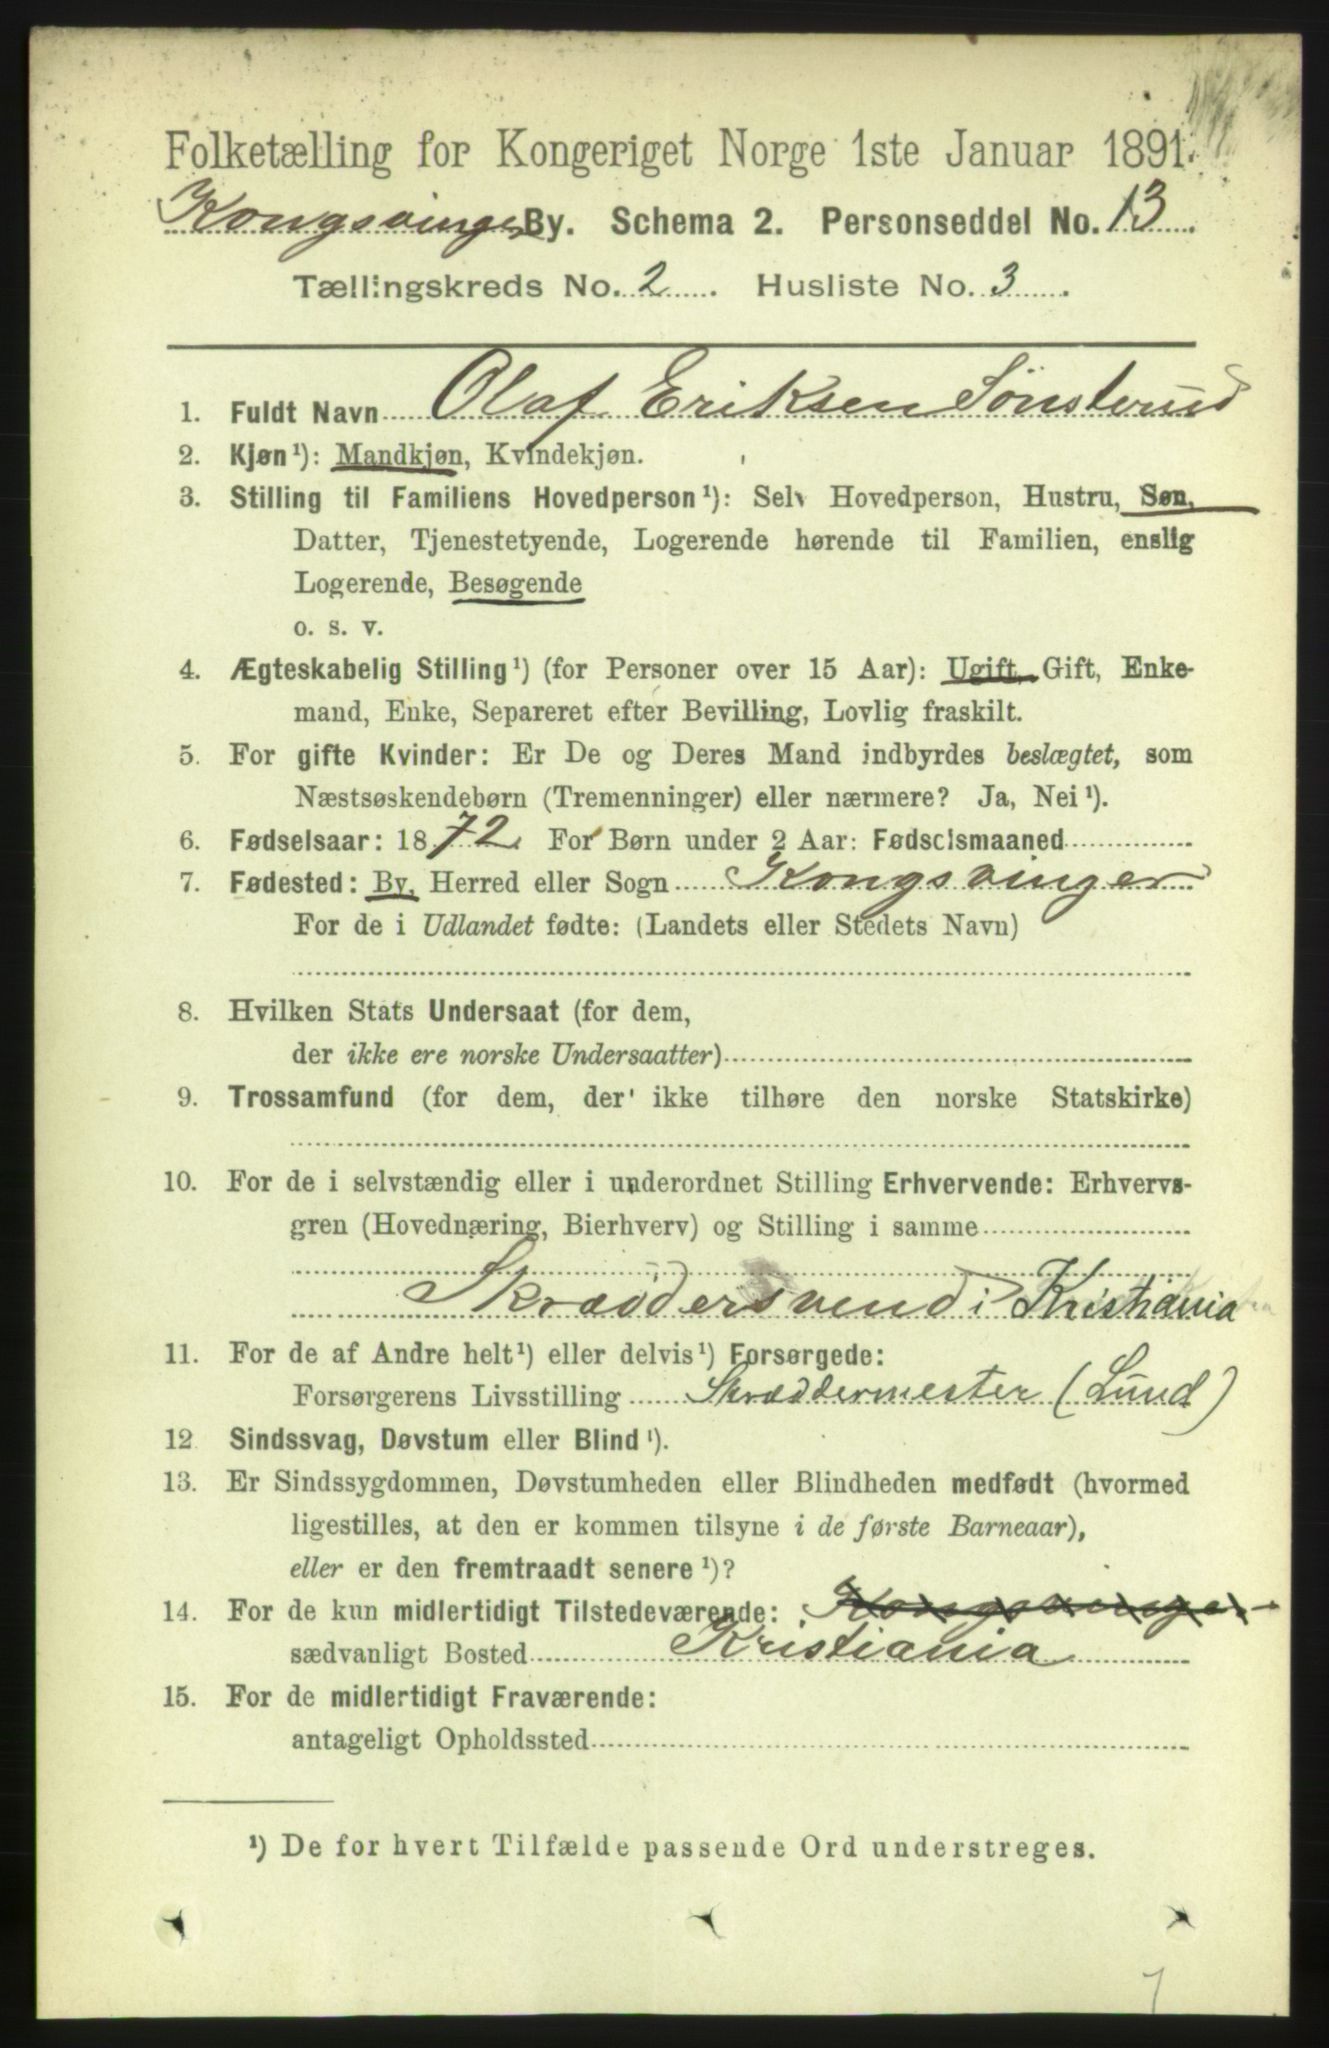 Folketælling for Kongeriget Norge 1ste Januar 1891.
Kongsvinger By. Schema 2. Personseddel No. 13
Tællingskreds No. 2 Husliste No. 3
1. Fuldt Navn Olaf Eriksen Sönsterud
2. Kjøn¹): Mandkjøn, Kvindekjøn.
3. Stilling til Familiens Hovedperson¹): Selv Hovedperson, Hustru, Søn,
Datter, Tjenestetyende, Logerende hørende til Familien, enslig
Logerende, Besøgende
o. s. v.
4. Ægteskabelig Stilling¹) (for Personer over 15 Aar): Ugift, Gift, Enke-
mand, Enke, Separeret efter Bevilling, Lovlig fraskilt.
5. For gifte Kvinder: Er De og Deres Mand indbyrdes beslægtet, som
Næstsøskendebørn (Tremenninger) eller nærmere? Ja, Nei¹).
6. Fødselsaar: 1872 For Børn under 2 Aar: Fødselsmaaned
7. Fødested: By, Herred eller Sogn Kongsvinger
For de i Udlandet fødte: (Landets eller Stedets Navn)
8. Hvilken Stats Undersaat (for dem,
der ikke ere norske Undersaatter)
9. Trossamfund (for dem, der ikke tilhøre den norske Statskirke)
10. For de i selvstændig eller i underordnet Stilling Erhvervende: Erhvervs-
gren (Hovednæring, Bierhverv) og Stilling i samme
Skræddersvend i Kristiania
11. For de af Andre helt¹) eller delvis¹) Forsørgede:
Forsørgerens Livsstilling Skræddermester (Lund)
12 Sindssvag, Døvstum eller Blind¹).
13. Er Sindssygdommen, Døvstumheden eller Blindheden medfødt (hvormed
ligestilles, at den er kommen tilsyne i de første Barneaar),
eller er den fremtraadt senere¹)?
14. For de kun midlertidigt Tilstedeværende: Kongsvinger
sædvanligt Bosted Kristiania
15. For de midlertidigt Fraværende:
antageligt Opholdssted
¹) De for hvert Tilfælde passende Ord understreges.
7